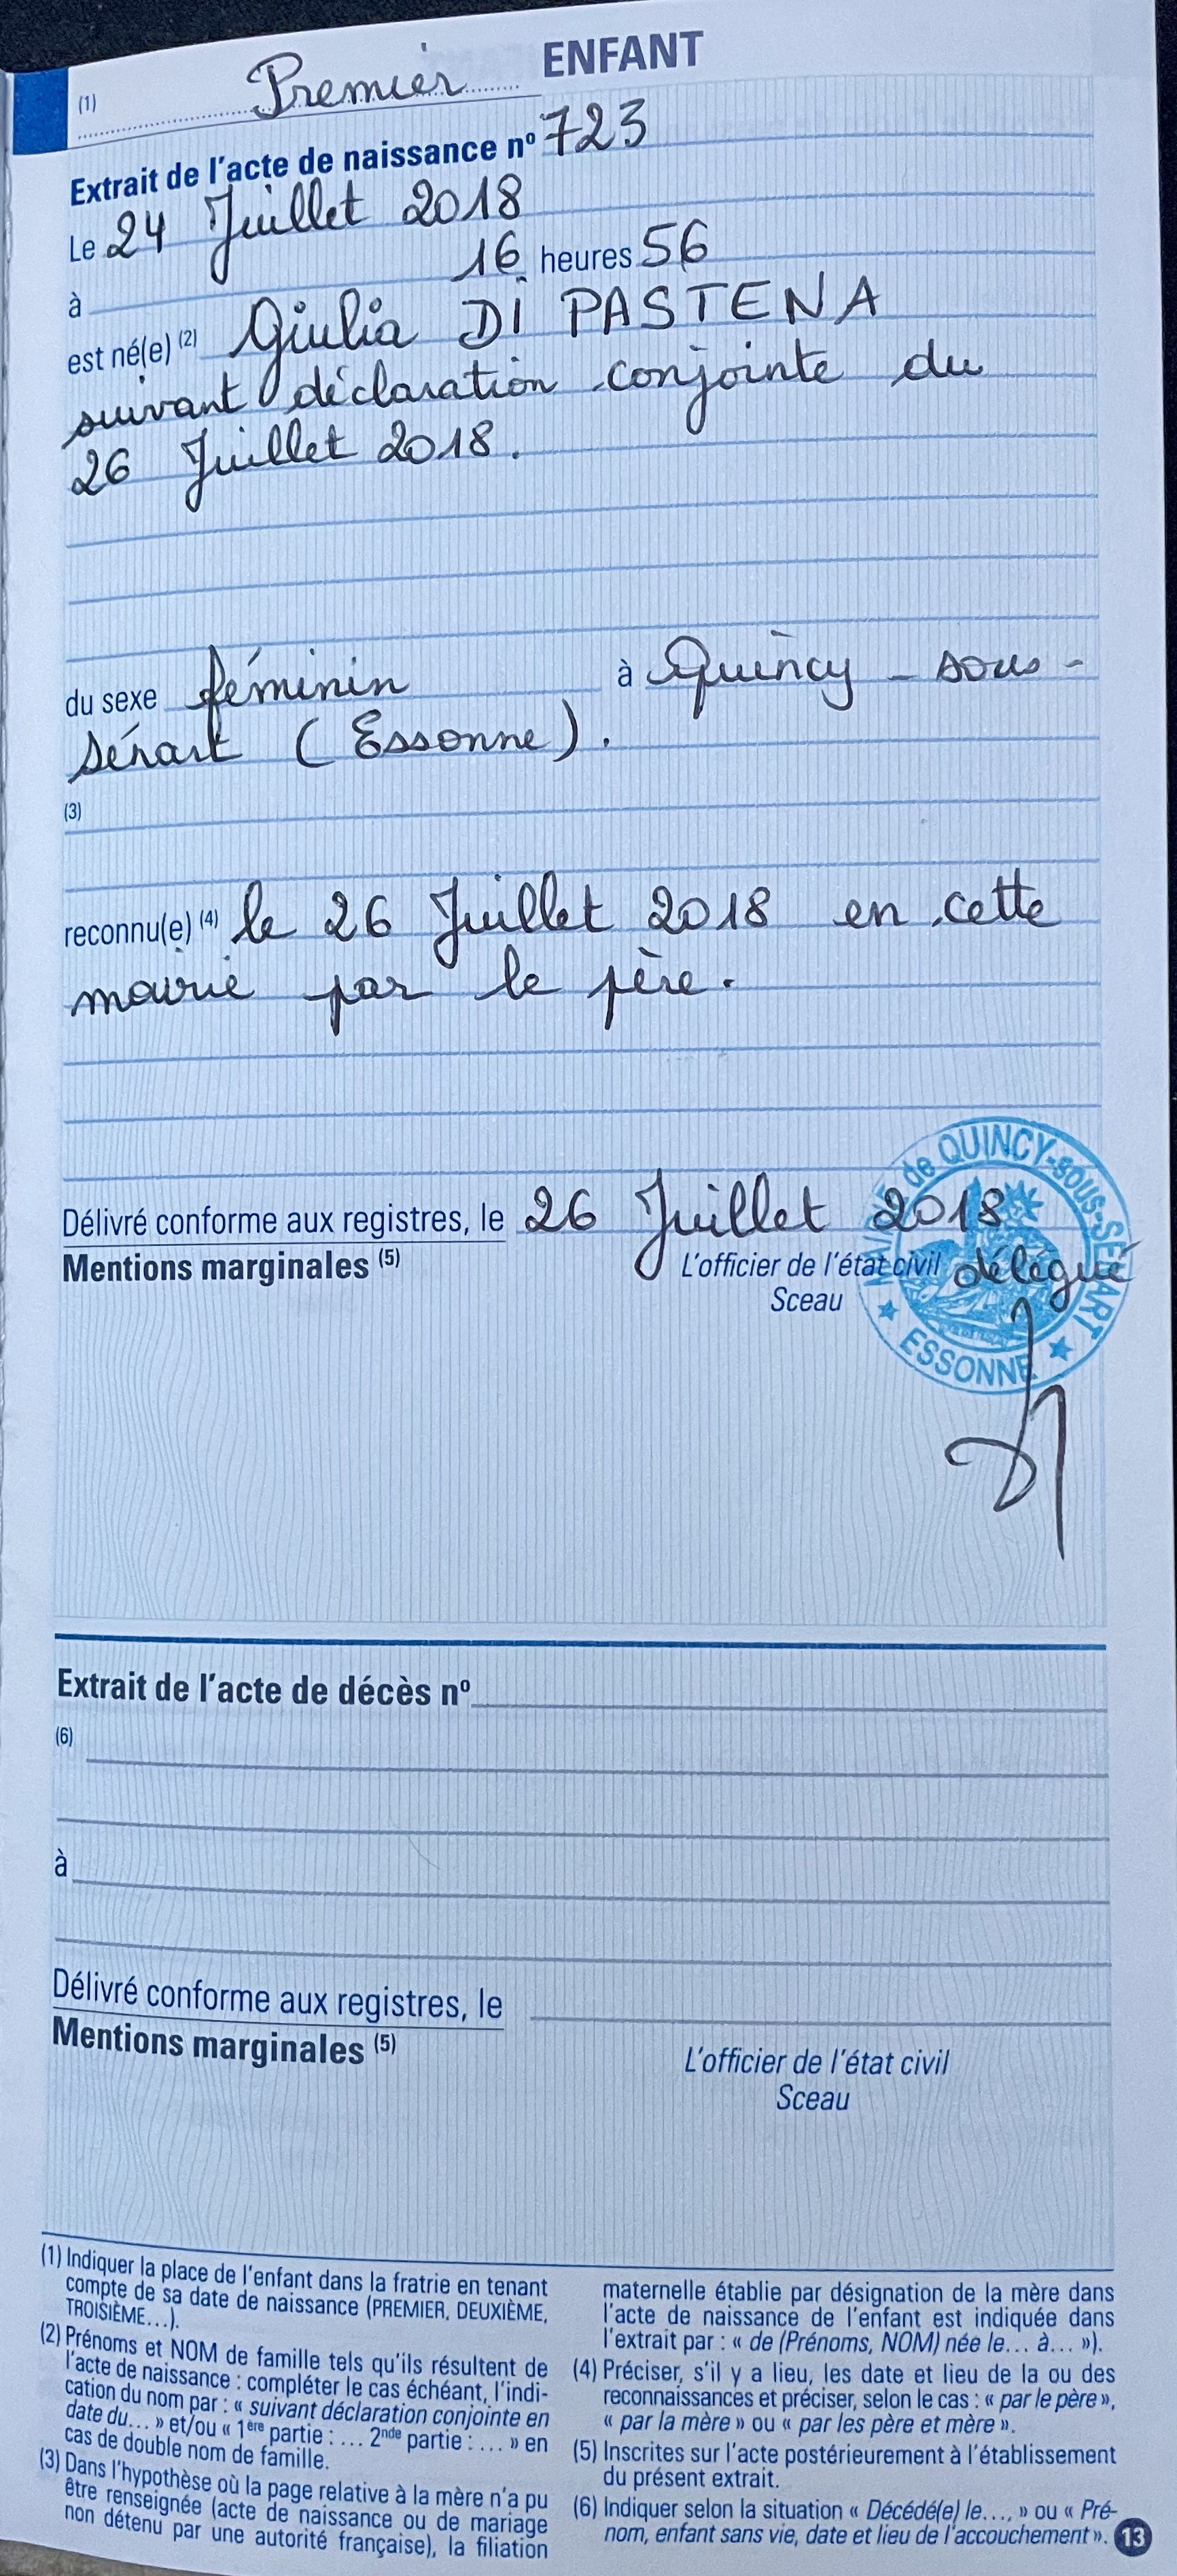 (1) Premier ENFANT
Extrait de l'acte de naissance nº 723
Le 24 Juillet 2018
à 16 heures 56
est né(e) (2) Giulia DI PASTENA
suivant déclaration conjointe du
26 Juillet 2018.
du sexe féminin à Quincy-sous-
Sénart (Essonne).
(3)
reconnu(e) (4) le 26 Juillet 2018 en cette
mairie par le père.
Délivré conforme aux registres, le 26 Juillet 2018
Mentions marginales (5)
L'officier de l'état civil délégué
Sceau
MAIRIE de QUINCY-SOUS-SÉNART
★ ESSONNE ★
Extrait de l'acte de décès nº
(6)
à
Délivré conforme aux registres, le
Mentions marginales (5)
L'officier de l'état civil
Sceau
(1) Indiquer la place de l'enfant dans la fratrie en tenant
compte de sa date de naissance (PREMIER, DEUXIÈME,
TROISIÈME...).
(2) Prénoms et NOM de famille tels qu'ils résultent de
l'acte de naissance : compléter le cas échéant, l'indi-
cation du nom par : « suivant déclaration conjointe en
date du... » et/ou « 1ère partie : ... 2nde partie : ... » en
cas de double nom de famille.
(3) Dans l'hypothèse où la page relative à la mère n'a pu
être renseignée (acte de naissance ou de mariage
non détenu par une autorité française), la filiation
maternelle établie par désignation de la mère dans
l'acte de naissance de l'enfant est indiquée dans
l'extrait par : « de (Prénoms, NOM) née le... à... »).
(4) Préciser, s'il y a lieu, les date et lieu de la ou des
reconnaissances et préciser, selon le cas : « par le père »,
« par la mère » ou « par les père et mère ».
(5) Inscrites sur l'acte postérieurement à l'établissement
du présent extrait.
(6) Indiquer selon la situation « Décédé(e) le..., » ou « Pré-
nom, enfant sans vie, date et lieu de l'accouchement ».
13